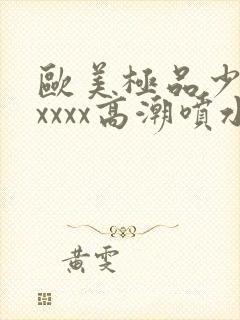 歐美極品少
xxxx高潮噴水
黃雯